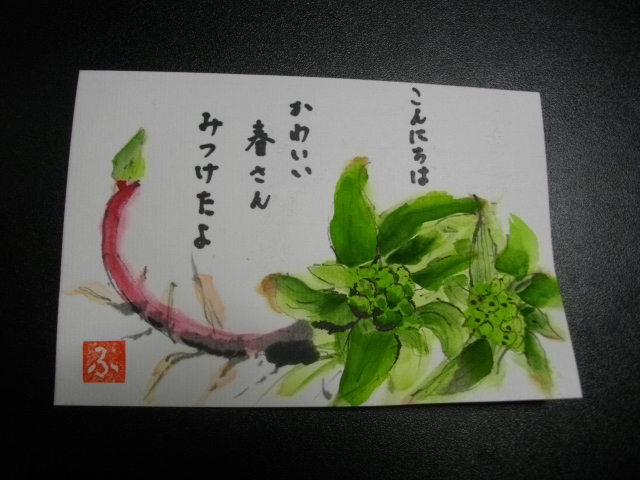 こんにちは
かわいい
春さん
みつけたよ
ふ